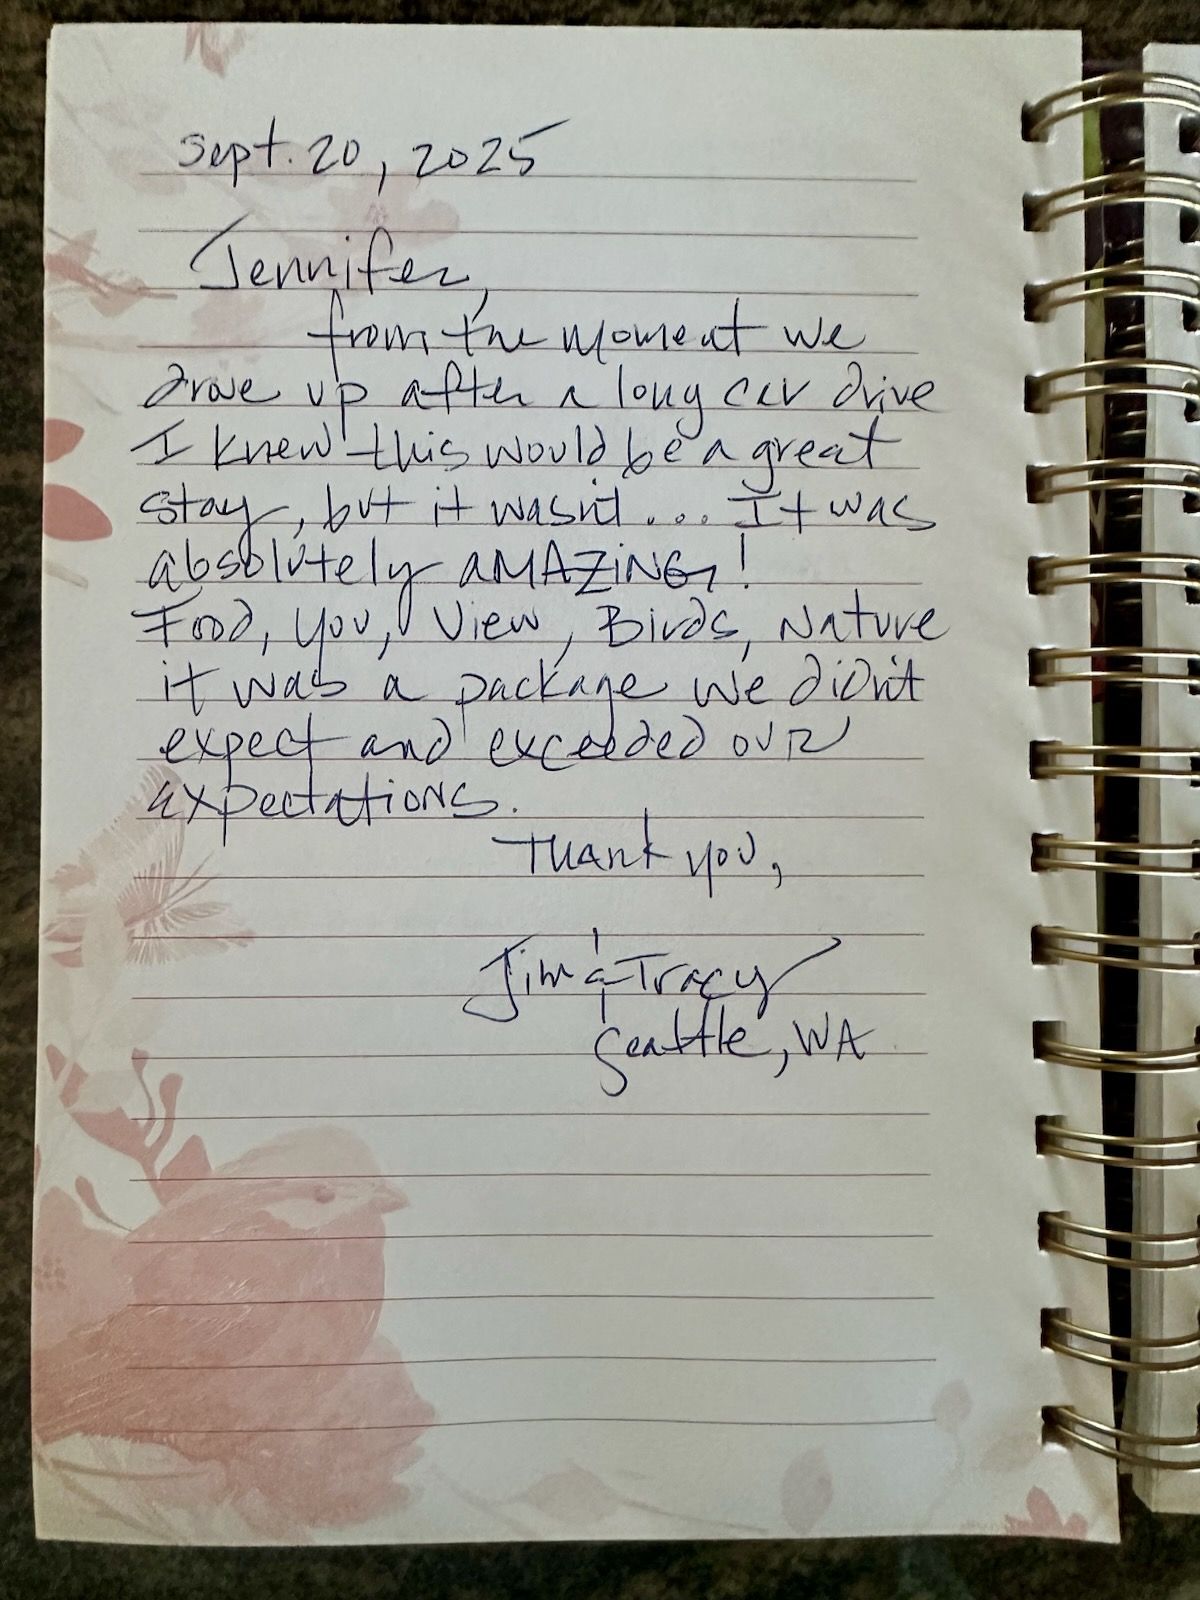 Sept. 20, 2025
Jennifer,
from the moment we
drove up after a long car drive
I knew this would be a great
stay, but it wasn't... It was
absolutely aMAZiNG!
Food, you, View, Birds, Nature
it was a package we didn't
expect and exceeded our
expectations.
Thank you,
Jim & Tracy
Seattle, WA